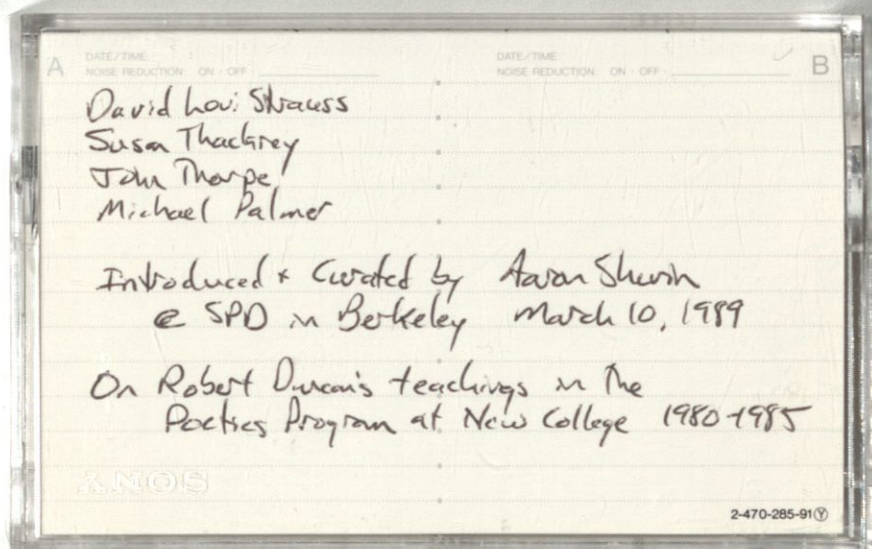 A DATE/TIME: DATE/TIME: B
NOISE REDUCTION: ON · OFF NOISE REDUCTION: ON · OFF
David Levi Strauss
Susan Thackrey
John Thorpe
Michael Palmer
Introduced + Curated by Aaron Shurin
@ SPD in Berkeley March 10, 1989
On Robert Duncan's teachings in the
Poetics Program at New College 1980-1985
SONY
2-470-285-91 Ⓨ